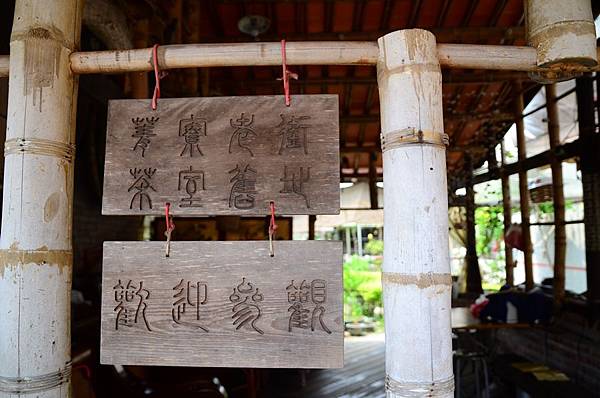 菁寮老街
茶室舊址
歡迎參觀